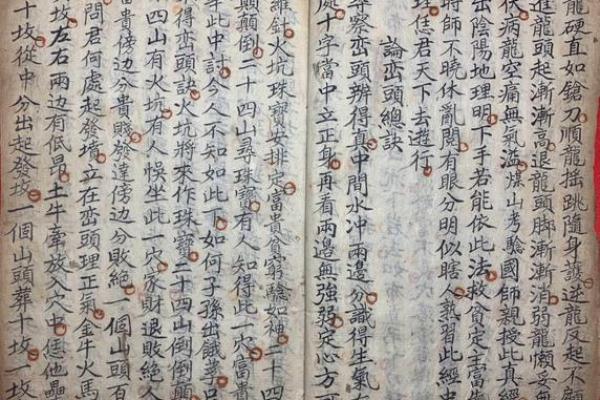 龍硬直如鎗刀順龍搖跳隨身護逆龍反起不顧
進龍頭起漸漸高退龍頭脚漸漸消弱龍懶妥無
伏病龍空痛無氣溢煤山考驗國師親授此真經
出陰陽地理明下手若能依此法救貧定主富
時師不曉休亂閙有眼分明似瞎人熟習此經中
理恁君天下去遊行
論巒頭總訣
尋察巒頭辨得真中間水冲兩邉分識得生氣在
處十字當中立正身再看兩邉無強弱定心方可
羅針火坑珠寶安排定富貴貧窮驗如神二十四
顛顛倒二十四山尋珠寶有人知得此一穴富貴
年此中討今人不知如此下如何子孫出餓莩
得巒頭訣火坑將來作珠寶二十四山倒倒顛
四山有火坑有人悮坐此一穴家財退敗絕人
貴傍邉分貴賤發達傍邉分敗絕一個山頭百
問君何處起發墳立在巒頭理正氣金牛火馬
坟左右兩边有低昂土牛牽放入穴中恁他
十坟從中分出起發坟一個山頭葬十坟一坟